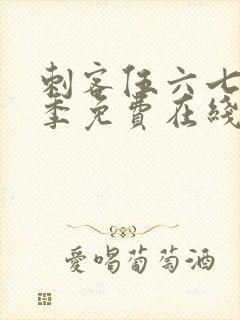 刺客伍六七
季免費在綫
愛喝葡萄酒